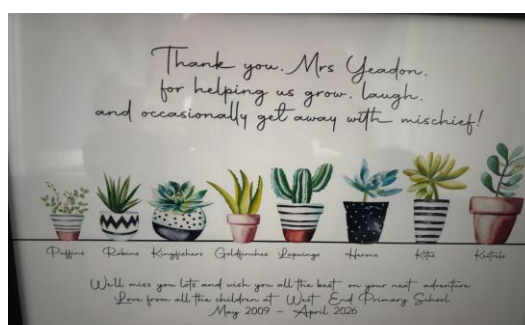 Thank you, Mrs Yeadon,
for helping us grow, laugh,
and occasionally get away with mischief!
Puffins Robins Kingfishers Goldfinches Lapwings Herons Kites Kestrels
We'll miss you lots and wish you all the best on your next adventure
Love from all the children at West End Primary School
May 2009 - April 2026